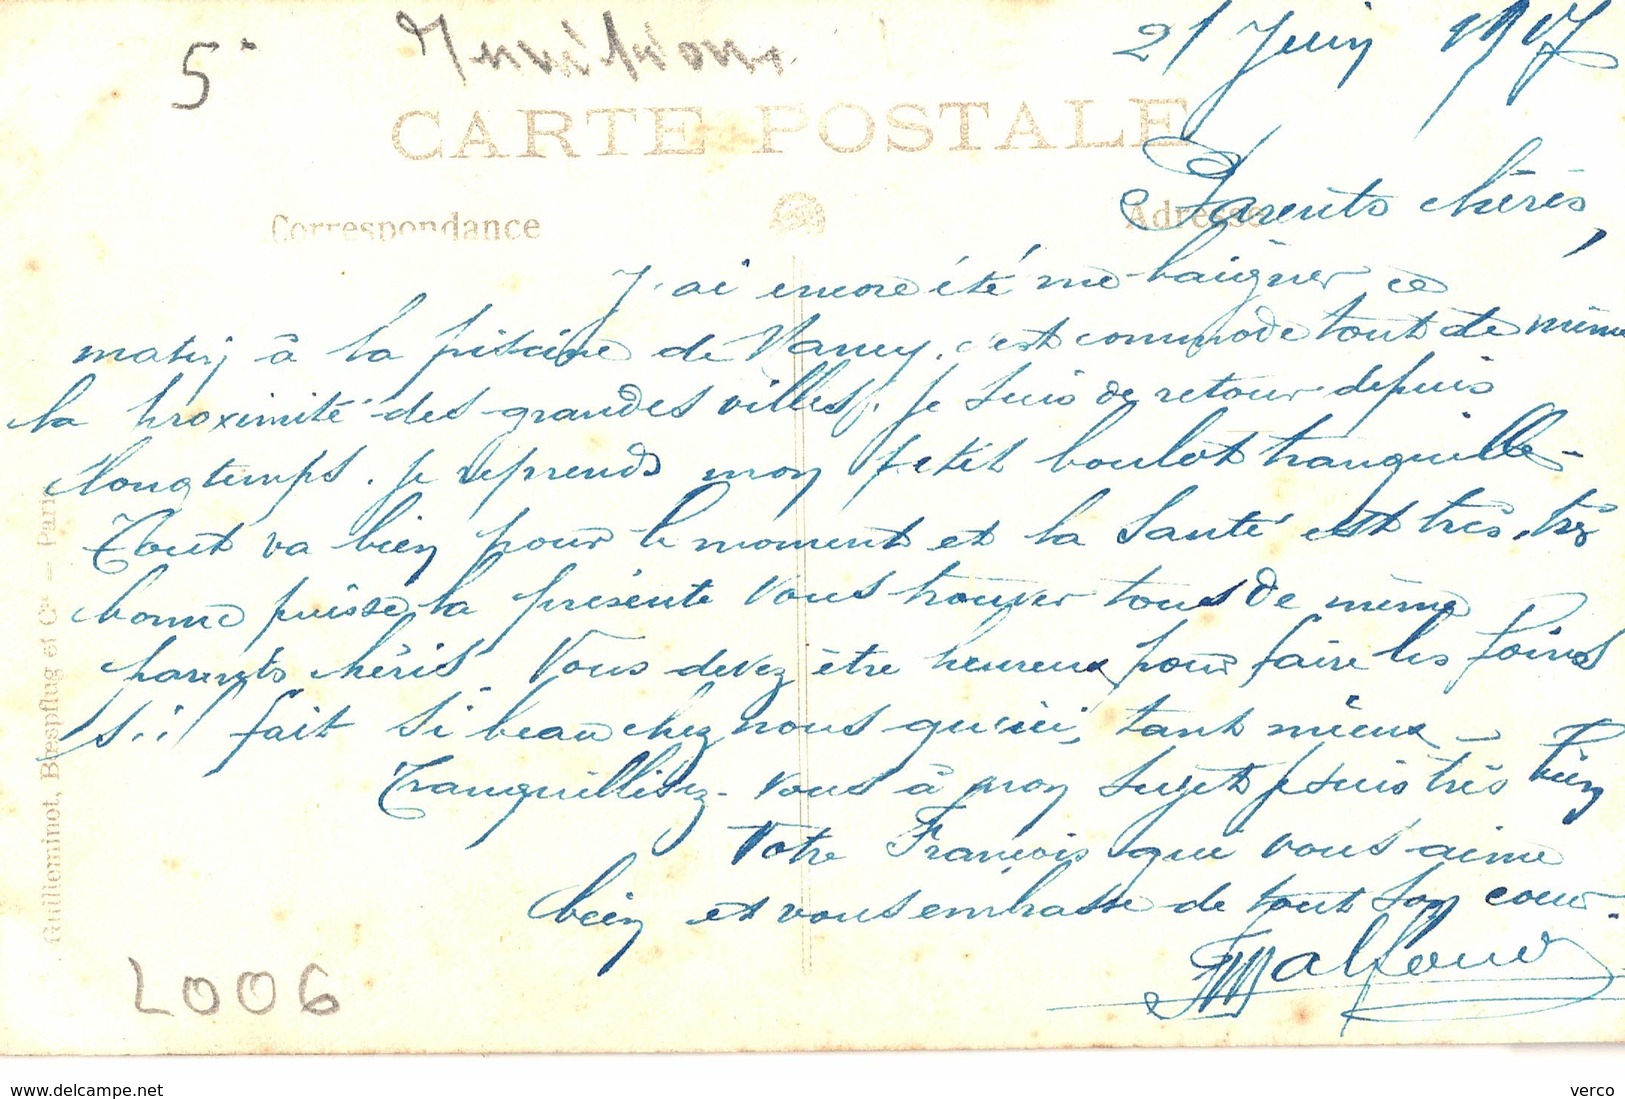 5
21 Juin 1917
CARTE POSTALE
Correspondance
Adresse
Parents chéris,
J'ai encore été me baigner ce
matin à la piscine de Nancy. c'est commode tout de même
la proximité des grandes villes. Je suis de retour depuis
longtemps. je reprends mon petit boulot tranquille -
Tout va bien pour le moment et la Santé est très, très
bonne puisse la présente vous trouver tous de même
parents chéris. Vous devez être heureux pour faire les foins
s'il fait si beau chez nous qu'ici, tant mieux -
Tranquillisez-vous à mon sujet je suis très bien
Votre François qui vous aime
bien et vous embrasse de tout son cœur.
FMalfoud
Guilleminot, Bœspflug et Cie - Paris
L006
www.delcampe.net
verco